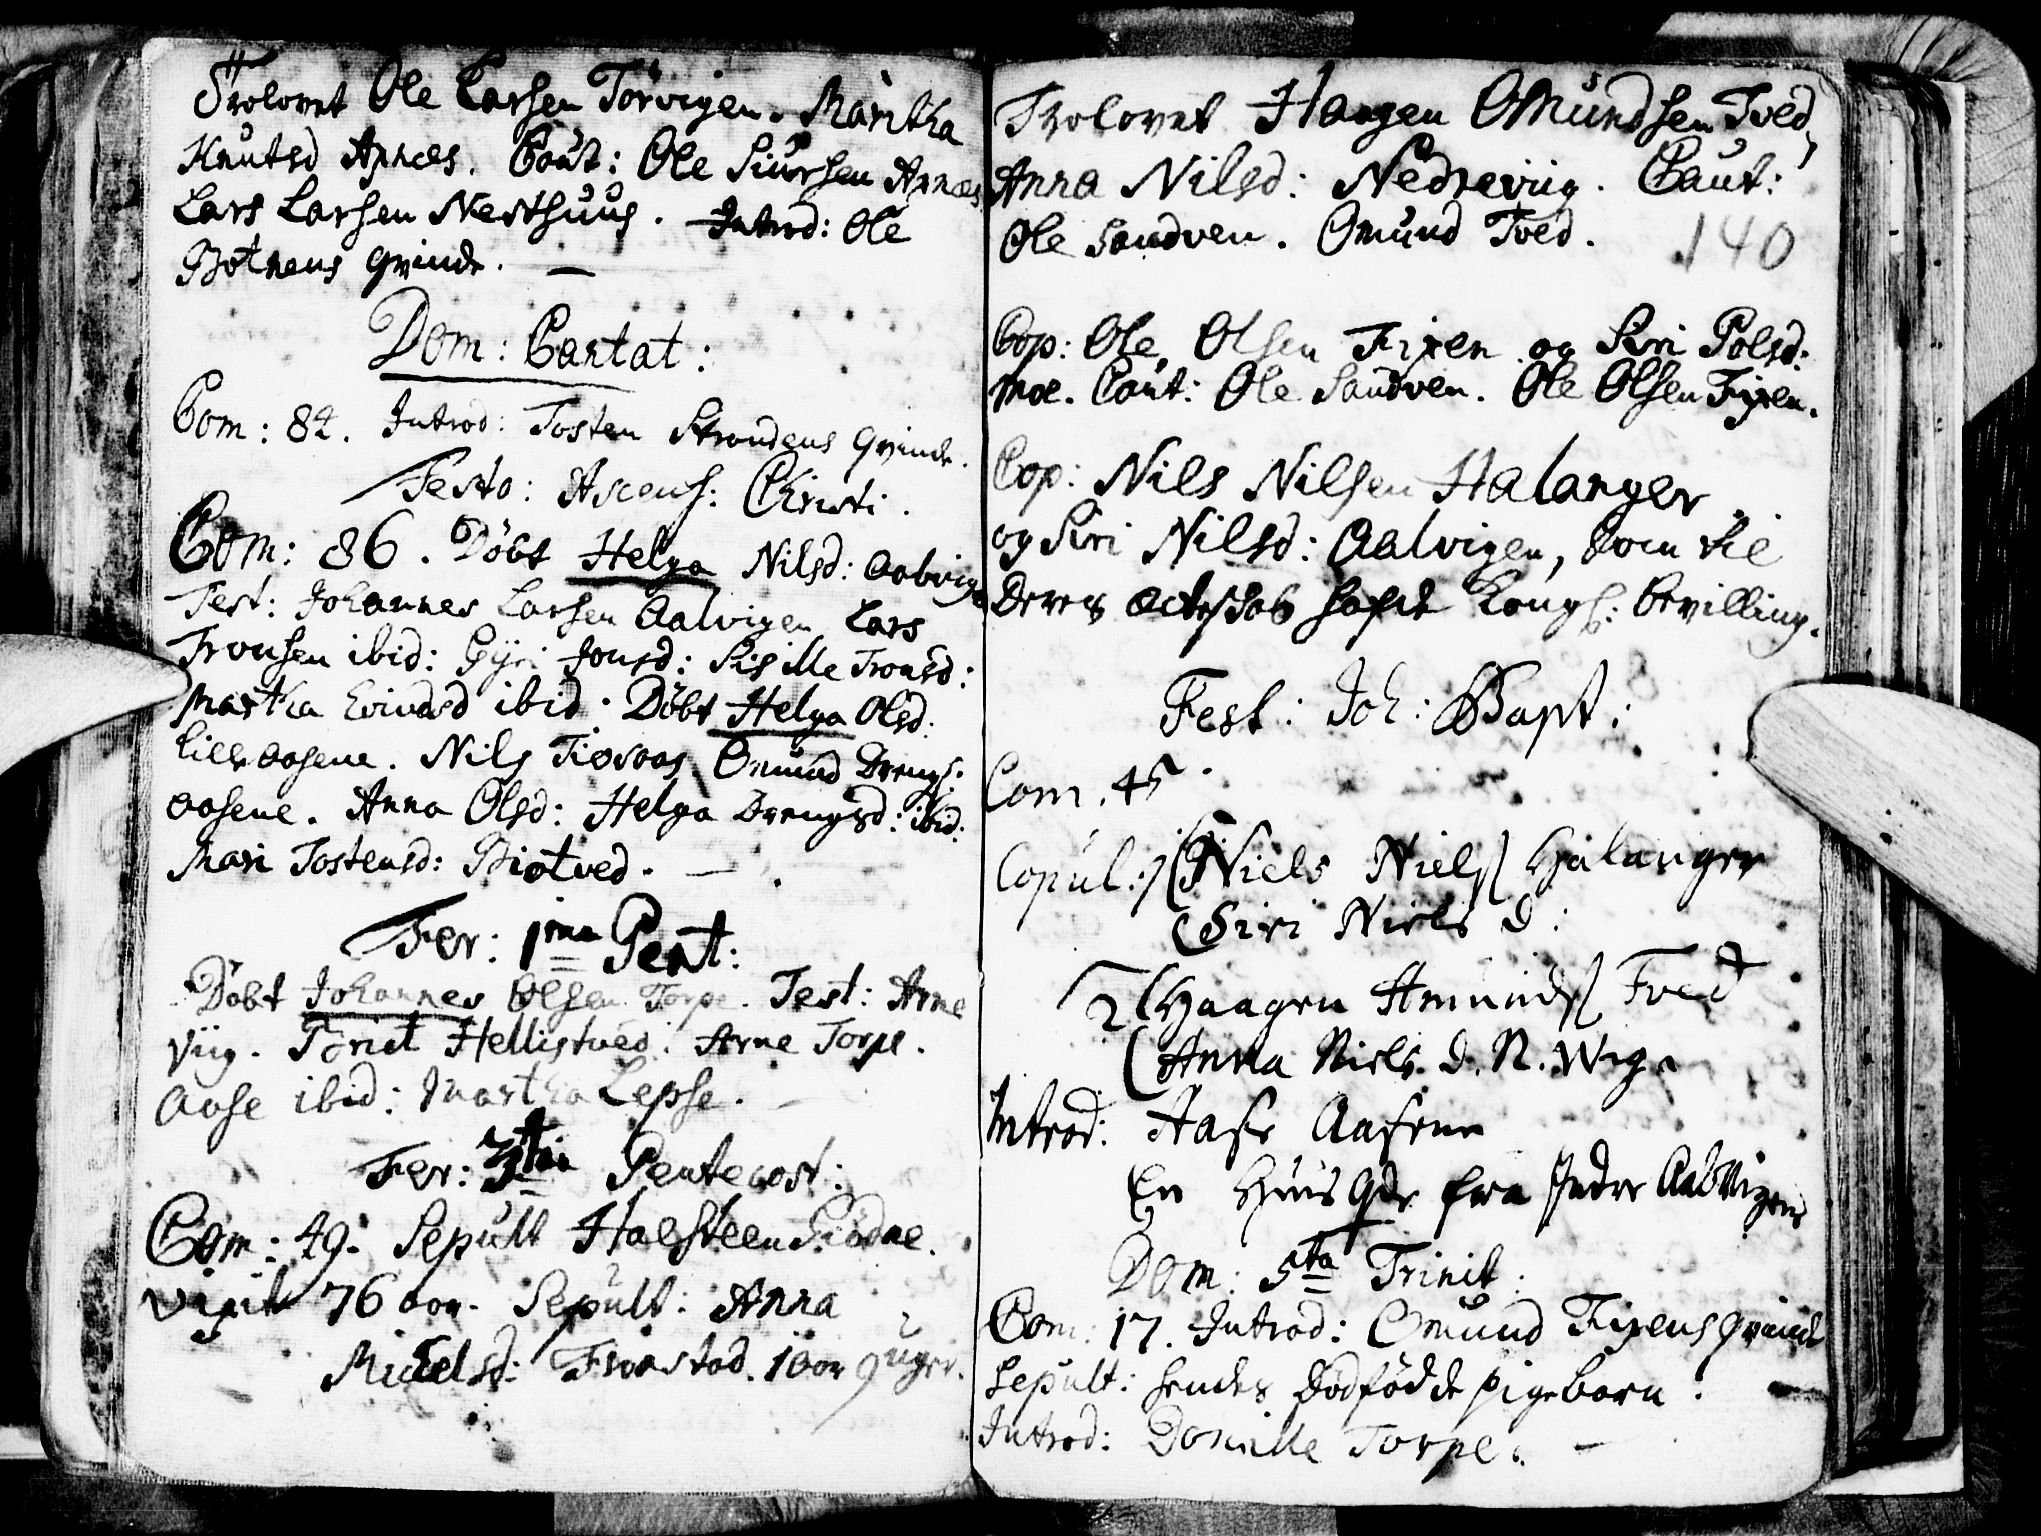 Trolovet Ole Larsen Törvigen. Maritha
Knutsd Apnces. Caut: Ole Siursen Apnces
Lars Larsen Nesthuus. Introd: Ole
Botnens qvinde. —
Dom: Cantat:
Com: 82. Introd: Tosten Strandens qvinde.
Festo: Ascens: Christi.
Com: 86. Döbt Helga Nilsd: Aalvig
Test: Johannes Larsen Aalvigen Lars
Tronsen ibid: Gyri Jonsd: Sisille Tronsd:
Martha Eivindsd ibid. Döbt Helga Olsd:
Lille Aasene. Nils Tiosaas Omund Drengs:
Aasene. Anna Olsd: Helga Drengsd: ibid:
Mari Tostensd: Biotved. —
Fer: 1ma Pent:
Döbt Johannes Olsen Torpe. Test: Arne
Viig. Torict Hellistved. Arne Torpe.
Aase ibid: Martha Lepse. —
Fer: 3tia Pentecost:
Com: 49. Sepult Halsteen Fiodne.
vixit 76 aar. Sepult: Anna
Michelsd: Froastad. 1 aar 9 uger.
Trolovet Haagen Omundsen Tved,
Anna Nilsd: Nedreviig. Caut:
Ole Sandven. Omund Tved.
140
Cop: Ole Olsen Fixen og Siri Polsd:
Moe. Caut: Ole Sandven. Ole Olsen Fixen.
Cop: Nils Nilsen Halanger
og Siri Nilsd: Aalvigen, som til
Deres Ecteskab hafde Kongl: bevilling.
Fest: Joh: Bapt:
Com. 45.
Copul: Niels Niels Halanger
Siri Niels D:
2 Haagen Amunds Tved
Anna Niels. d. N. Wig.
Introd: Aase Aasene
En Huus Qde fra Indre Aalvigen
Dom: 5ta Trinit:
Com: 17. Introd: Omund Fixens qvinde
Sepult: hendes Dödfödde pigebarn.
Introd: Donille Torpe. —